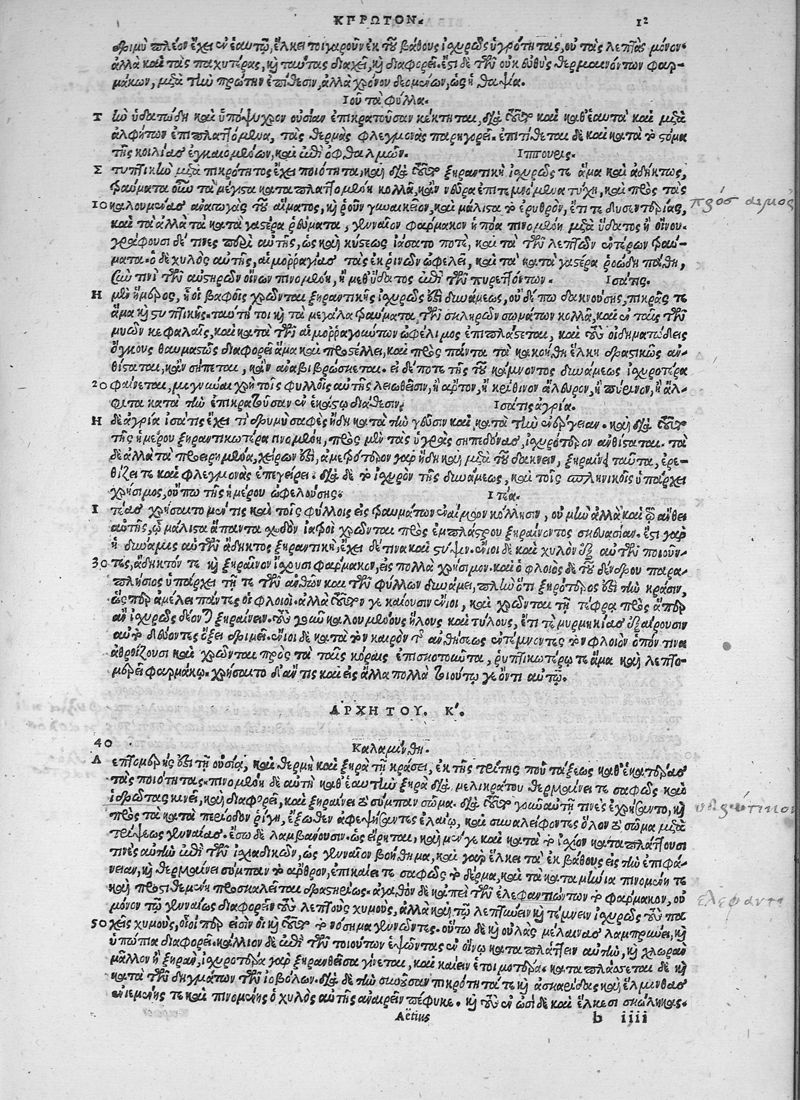 ΠΡΩΤΟΝ. 12
δριμὺ πλέον ἔχει ἐν ἑαυτῷ, ἕλκει τοιγαροῦν ἐκ τοῦ βάθους ἰσχυρῶς ὑγρότητας, οὐ τὰς λεπτὰς μόνον
ἀλλὰ καὶ τὰς παχυτέρας, καὶ ταύτας διαχεῖ, καὶ διαφορεῖ. ἔστι δὲ τῶν οὐκ εὐθὺς θερμαινόντων φαρ-
μάκων, μετὰ τὴν πρώτην ἐπίθεσιν, ἀλλὰ χρόνου δεομένων, ὡς ἡ θαψία.
Ἴου τὰ φύλλα.
Τ ὴν ὑδατώδη καὶ ὑπόψυχρον οὐσίαν ἐπικρατοῦσαν κέκτηται, διὰ τοῦτο καὶ καθ' ἑαυτὰ καὶ μετὰ
ἀλφίτων ἐπιπλαττόμενα, τὰς θερμὰς φλεγμονὰς παρηγορεῖ. ἐπιτίθεται δὲ καὶ κατὰ τὸ στόμα
τῆς κοιλίας ἐγκαιομένων, καὶ ἐπὶ ὀφθαλμῶν. Ἵππουρις.
Σ τυπτικὴν μετὰ πικρότητος ἔχει ποιότητα, καὶ διὰ τοῦτο ξηραντικὴ ἰσχυρῶς τε ἅμα καὶ ἀδήκτως,
τραύματα οὖν τὰ μέγιστα καταπλαττομένη κολλᾷ, κἂν νεῦρα ἐπιτετμημένα τύχῃ, καὶ πρὸς τὰς
10 καλουμένας ἀναγωγὰς τοῦ αἵματος, καὶ ῥοῦν γυναικεῖον, καὶ μάλιστα τὸ ἐρυθρὸν, ἔτι τε δυσεντερίας,
καὶ τὰ ἄλλα τὰ κατὰ γαστέρα ῥεύματα, γενναῖον φάρμακον ἡ πόα πινομένη μετὰ ὕδατος ἢ οἴνου.
γράφουσι δέ τινες περὶ αὐτῆς, ὡς καὶ κύστεως ἰάσατο ποτὲ, καὶ τὰ τῶν λεπτῶν ἐντέρων τραύ-
ματα. ὁ δὲ χυλὸς αὐτῆς, αἱμορραγίας τὰς ἐκ ῥινῶν ὠφελεῖ, καὶ τὰ κατὰ γαστέρα ῥοώδη πάθη,
σύν τινι τῶν αὐστηρῶν οἴνων πινομένη, ἢ μεθ' ὕδατος ἐπὶ τῶν πυρεττόντων. Ἰσάτις.
Η μὲν ἥμερος, ᾗ οἱ βαφεῖς χρῶνται ξηραντικῆς ἰσχυρῶς ἐστὶ δυνάμεως, οὐδέπω δακνούσης, πικρὸς τε
ἅμα καὶ στυπτικῆς. ταύτῃ τοι καὶ τὰ μεγάλα τραύματα, τῶν σκληρῶν σωμάτων κολλᾷ, κἂν ἐν ταῖς τῶν
μυῶν κεφαλαῖς, καὶ κατὰ τῶν αἱμορραγούντων ὠφέλιμος ἐπιπλάσσεται, καὶ τοὺς οἰδηματώδεις
ὄγκους θαυμαστῶς διαφορεῖ ἅμα καὶ προστέλλει, καὶ πρὸς πάντα τὰ κακοήθη ἕλκη δραστικῶς ἀν-
θίσταται, κἂν σήπεται, κἂν ἀναβιβρώσκεται. εἰ δέ ποτε τῆς τοῦ κάμνοντος δυνάμεως ἰσχυροτέρα
20 φαίνεται, μιγνύναι χρὴ τοῖς φύλλοις αὐτῆς λειωθεῖσιν, ἢ ἄρτον, ἢ κρίθινον ἄλευρον, ἢ πύρινον, ἢ ἄλ-
φιτα κατὰ τὴν ἐπικρατοῦσαν ἐν ἑκάστῳ διάθεσιν. Ἰσάτις ἀγρία.
Η δὲ ἀγρία ἰσάτις ἔχει τι δριμὺ σαφὲς ἤδη κατὰ τὴν γεῦσιν καὶ κατὰ τὴν ἐνέργειαν. καὶ διὰ τοῦτο
τῆς ἡμέρου ξηραντικωτέρα πινομένη, πρὸς μὲν τὰς ὑγρὰς σηπεδόνας, ἰσχυρότερον ἀνθίσταται. τὰ
δὲ ἄλλα τὰ προειρημένα, χείρων ἐστὶ, ἀμετρότερον γὰρ ἤδη καὶ μετὰ τοῦ δάκνειν, ξηραίνει ταῦτα, ἐρε-
θίζει τε καὶ φλεγμονὰς ἐπεγείρει. διὰ δὲ τὸ ἰσχυρὸν τῆς δυνάμεως, καὶ τοῖς σπληνικοῖς ὑπάρχει
χρήσιμος, οὔπω τῆς ἡμέρου ὠφελούσης. Ἰτέα.
Ι τέας χρήσαιτο μέν τις καὶ τοῖς φύλλοις εἰς τραυμάτων ἐναίμων κόλλησιν, οὐ μὴν ἀλλὰ καὶ τῷ ἄνθει
αὐτῆς, ᾧ μάλιστα ἅπαντα σχεδὸν ἰατροὶ χρῶνται πρὸς ἐμπλάστρου ξηραίνοντος σκευασίαν. ἔστι γὰρ
ἡ δύναμις αὐτῶν ἄδηκτος ξηραντική, ἔχει δέ τινα καὶ στύψιν. ἔνιοι δὲ καὶ χυλὸν ἐξ αὐτῶν ποιοῦν-
30 τες, ἄδηκτόν τε καὶ ξηραῖνον ἴσχουσι φάρμακον, εἰς πολλὰ χρήσιμον. καὶ ὁ φλοιὸς δὲ τοῦ δένδρου παρα-
πλήσιος ὑπάρχει τῇ τε τῶν ἀνθῶν καὶ τῶν φύλλων δυνάμει, πλὴν ὅτι ξηρότερος ἐστὶ τὴν κρᾶσιν,
ὥσπερ ἀμέλει πάντες οἱ φλοιοί. ἀλλὰ τοῦτόν γε καίουσιν ἔνιοι, καὶ χρῶνται τῇ τέφρᾳ πρὸς ἅπερ
ἂν ἰσχυρῶς δέονται ξηραίνειν. τοὺς γοῦν καλουμένους ἥλους καὶ τύλους, ἔτι τε μυρμηκίας ἐξαίρουσιν
αὐτὸ δεύοντες ὄξει δριμεῖ. ἔνιοι δὲ κατὰ τὸν καιρὸν τῆς ἀνθήσεως ἐντέμνοντες τὸν φλοιὸν ὀπόν τινα
ἀθροίζουσι καὶ χρῶνται πρὸς τὰ ταῖς κόραις ἐπισκοτοῦντα, ῥυπτικωτέρῳ τε ἅμα καὶ λεπτο-
μερεῖ φαρμάκῳ. χρήσαιτο δ' ἄν τις καὶ εἰς ἄλλα πολλὰ τοιούτῳ γε ὄντι αὐτῷ.
ΑΡΧΗ ΤΟΥ. Κ'.
40 Καλαμίνθη.
Λ επτομερής ἐστι τῇ οὐσίᾳ, καὶ θερμὴ καὶ ξηρὰ τῇ κράσει, ἐκ τῆς τρίτης που τάξεως καθ' ἑκατέρας
τὰς ποιότητας. πινομένη δὲ αὐτὴ καθ' ἑαυτὴν ξηρὰ διὰ μελικράτου θερμαίνει τε σαφῶς καὶ
ἱδρῶτας κινεῖ, καὶ διαφορεῖ, καὶ ξηραίνει τὸ σύμπαν σῶμα. διὰ τοῦτο γοῦν αὐτῇ τινες ἐχρήσαντο, καὶ
πρὸς τὰ κατὰ περίοδον ῥίγη, ἔξωθεν ἀφεψήσαντες ἐλαίῳ, καὶ συναλείφοντες ὅλον τὸ σῶμα μετὰ
τρίψεως γενναίας. ἔσω δὲ λαμβάνουσιν ὡς εἴρηται, καὶ μέν γε καὶ κατὰ τὸ ἰσχίον καταπλάττουσί
τινες αὐτὴν ἐπὶ τῶν ἰσχιαδικῶν, ὡς γενναῖον βοήθημα, καὶ γὰρ ἕλκει τὰ ἐκ βάθους εἰς τὴν ἐπιφά-
νειαν, καὶ θερμαίνει σύμπαν τὸ ἄρθρον, ἐπικαίει τε σαφῶς τὸ δέρμα, καὶ τὰ καταμήνια πινομένη τε
καὶ προστιθεμένη προσκαλεῖται δραστηρίως. ἀγαθὸν δὲ καὶ ἐπὶ τῶν ἐλεφαντιώντων τὸ φάρμακον, οὐ
μόνον τῷ γενναίως διαφορεῖν τοὺς λεπτοὺς χυμούς, ἀλλὰ καὶ τῷ λεπτύνειν καὶ τέμνειν ἰσχυρῶς τοὺς πα
50 χεῖς χυμούς, οἵοιπερ εἰσὶν οἱ καὶ τοῦτο τὸ νόσημα γεννῶντες. οὕτω δὲ καὶ οὐλὰς μελαίνας λαμπρύνει, καὶ
ὑπώπια διαφορεῖ. κάλλιον δὲ ἐπὶ τῶν τοιούτων ἑψῶντας ἐν οἴνῳ καταπλάττειν αὐτὴν, καὶ χλωρὰν
μᾶλλον ἢ ξηράν, ἰσχυροτέρα γὰρ ξηρανθεῖσα γίνεται, καὶ καίειν ἑτοιμοτέρα. καταπλάσσεται δὲ καὶ
κατὰ τῶν δηγμάτων τῶν ἰοβόλων. διὰ δὲ τὴν ἐνοῦσαν πικρότητά τε καὶ ἀσκαρίδας καὶ ἕλμινθας
ἐνιεμένης τε καὶ πινομένης ὁ χυλὸς αὐτῆς ἀναιρεῖν πέφυκε. καὶ τοὺς ἐν ὠσὶ δὲ καὶ ἕλκεσι σκώληκας.
Aëtius b iiii
πρός αιμος
ελεφαντι